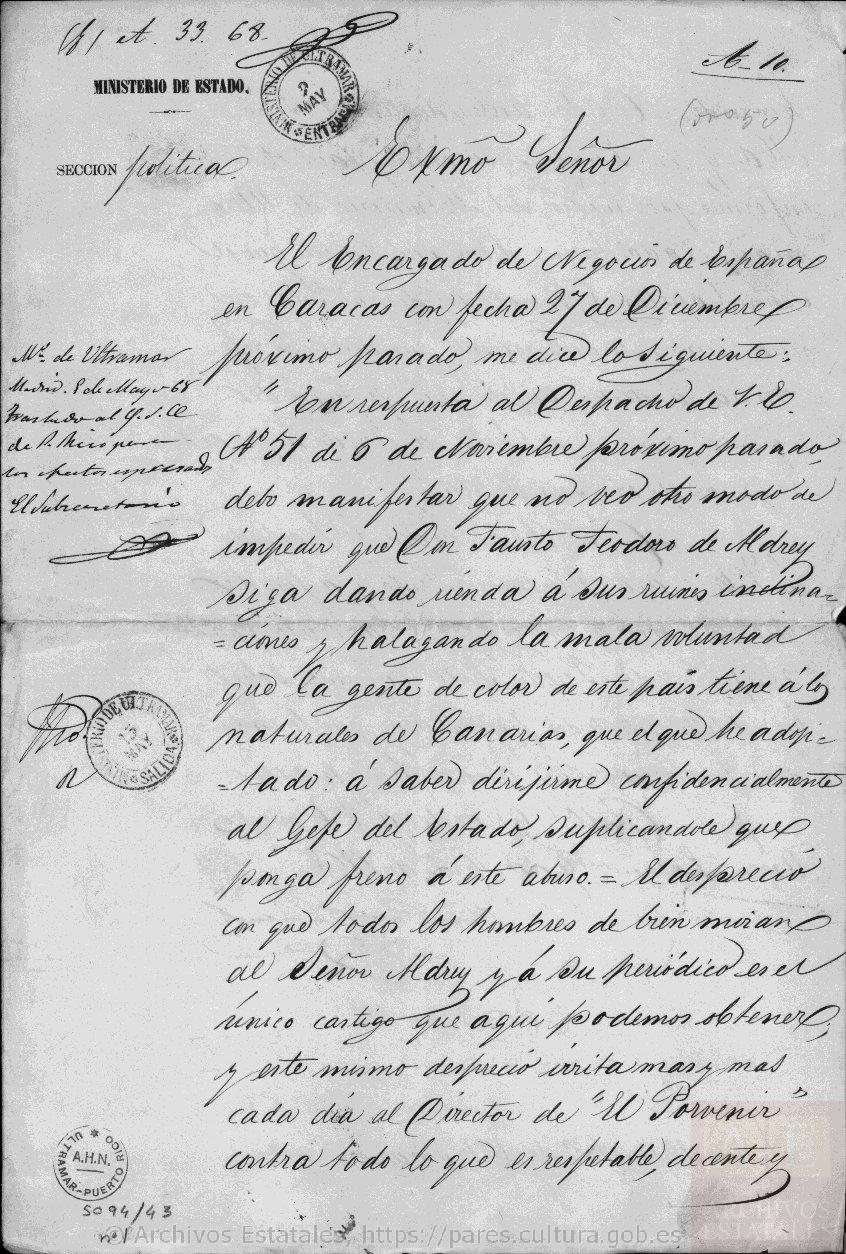 A. 33. 68.
A. 10.
MINISTERIO DE ESTADO.
MINISTERIO DE ULTRAMAR
2
MAY
ENTRADA
SECCION politica
Exmõ Señor
El Encargado de Negocios de España
en Caracas con fecha 27 de Diciembre
próximo pasado, me dice lo siguiente:
" En respuesta al Despacho de V. E.
Nº 51 de 6 de Noviembre próximo pasado,
debo manifestar que no veo otro modo de
impedir que Don Fausto Teodoro de Aldrey
siga dando rienda á sus ruines inclina=
=ciones y halagando la mala voluntad
que la gente de color de este país tiene á los
naturales de Canarias, que el que he adop=
=tado: á saber dirijirme confidencialmente
al Gefe del Estado, suplicandole que
ponga freno á este abuso. = El desprecio
con que todos los hombres de bien miran
al Señor Aldrey y á su periódico es el
único castigo que aqui podemos obtener;
y este mismo desprecio irrita mas y mas
cada dia al Director de "El Porvenir"
contra todo lo que es respetable, decente y
Mº de Ultramar
Madrid. 8 de Mayo 68
Traslado al G. S. C.
de P. Rico para
los efectos expresados
El Subsecretario
MINISTERIO DE ULTRAMAR
13
MAY
SALIDA
ULTRAMAR-PUERTO RICO
A.H.N.
5094/43
nº 1
© Archivos Estatales, https://pares.cultura.gob.es
ARCHIVOS
ESTATALES